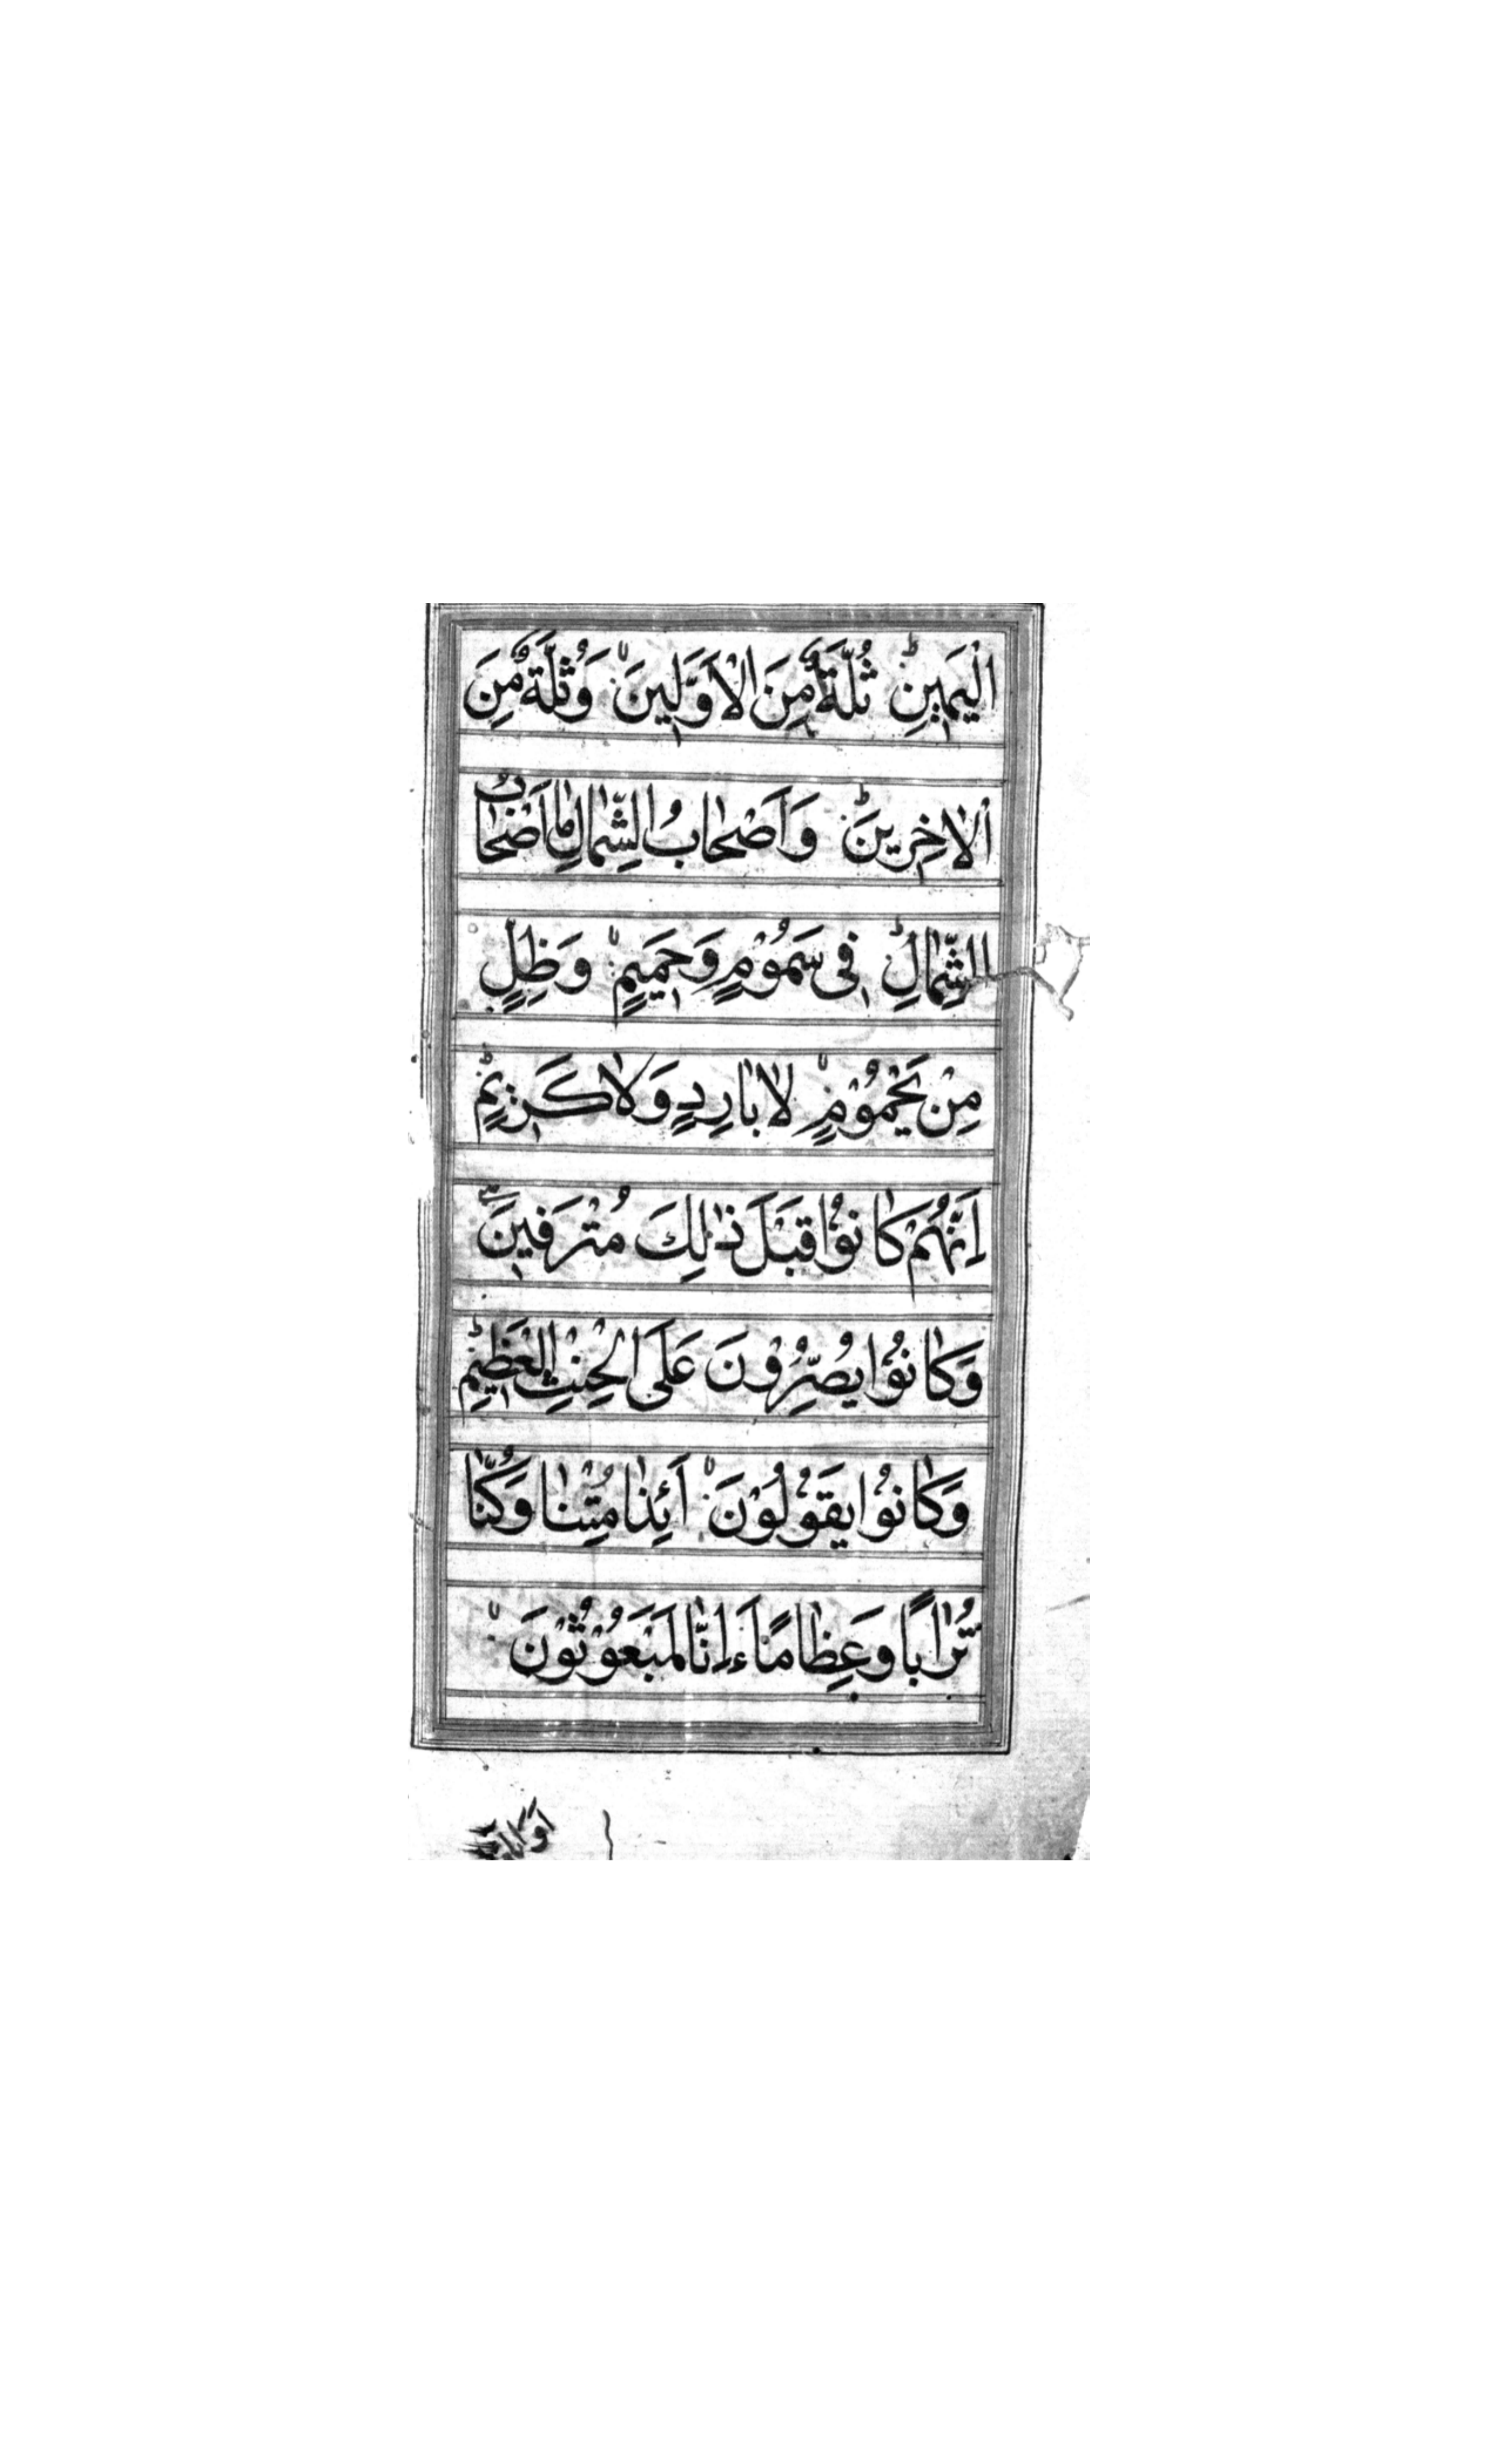 الْيَمِينِ ثُلَّةٌ مِنَ الْاَوَّلِينَ وَثُلَّةٌ مِنَ
الْاٰخِرِينَ وَاَصْحَابُ الشِّمَالِ مَا اَصْحَابُ
الشِّمَالِ فِى سَمُوْمٍ وَحَمِيمٍ وَظِلٍّ
مِنْ يَحْمُوْمٍ لَا بَارِدٍ وَلَا كَرِيمٍ
اِنَّهُمْ كَانُوْا قَبْلَ ذٰلِكَ مُتْرَفِينَ
وَكَانُوْا يُصِرُّوْنَ عَلَى الْحِنْثِ الْعَظِيمِ
وَكَانُوْا يَقُوْلُوْنَ اَئِذَا مِتْنَا وَكُنَّا
تُرَابًا وَعِظَامًا ءَاِنَّا لَمَبْعُوْثُوْنَ